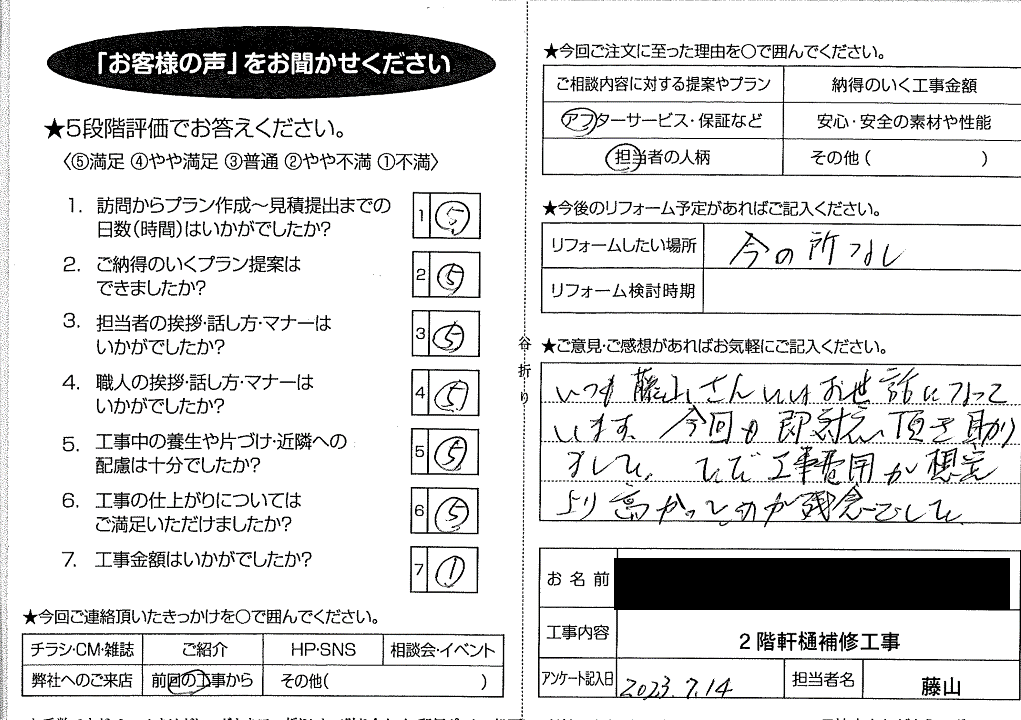 「お客様の声」をお聞かせください
★5段階評価でお答えください。
〈⑤満足 ④やや満足 ③普通 ②やや不満 ①不満〉
1. 訪問からプラン作成～見積提出までの
日数(時間)はいかがでしたか?
1 ⑤
2. ご納得のいくプラン提案は
できましたか?
2 ⑤
3. 担当者の挨拶・話し方・マナーは
いかがでしたか?
3 ⑤
4. 職人の挨拶・話し方・マナーは
いかがでしたか?
4 ⑤
5. 工事中の養生や片づけ・近隣への
配慮は十分でしたか?
5 ⑤
6. 工事の仕上がりについては
ご満足いただけましたか?
6 ⑤
7. 工事金額はいかがでしたか?
7 ①
★今回ご連絡頂いたきっかけを○で囲んでください。
チラシ・CM・雑誌 ご紹介 HP・SNS 相談会・イベント
弊社へのご来店 前回の工事から その他( )
谷折り
★今回ご注文に至った理由を○で囲んでください。
ご相談内容に対する提案やプラン 納得のいく工事金額
アフターサービス・保証など 安心・安全の素材や性能
担当者の人柄 その他( )
★今後のリフォーム予定があればご記入ください。
リフォームしたい場所 今の所なし
リフォーム検討時期
★ご意見・ご感想があればお気軽にご記入ください。
いつも藤山さんにはお世話になって
います。今回も即対応頂き助かり
ました。ただ工事費用が想定
より高かったのが残念でした。
お名前
工事内容 2階軒樋補修工事
アンケート記入日 2023.7.14 担当者名 藤山